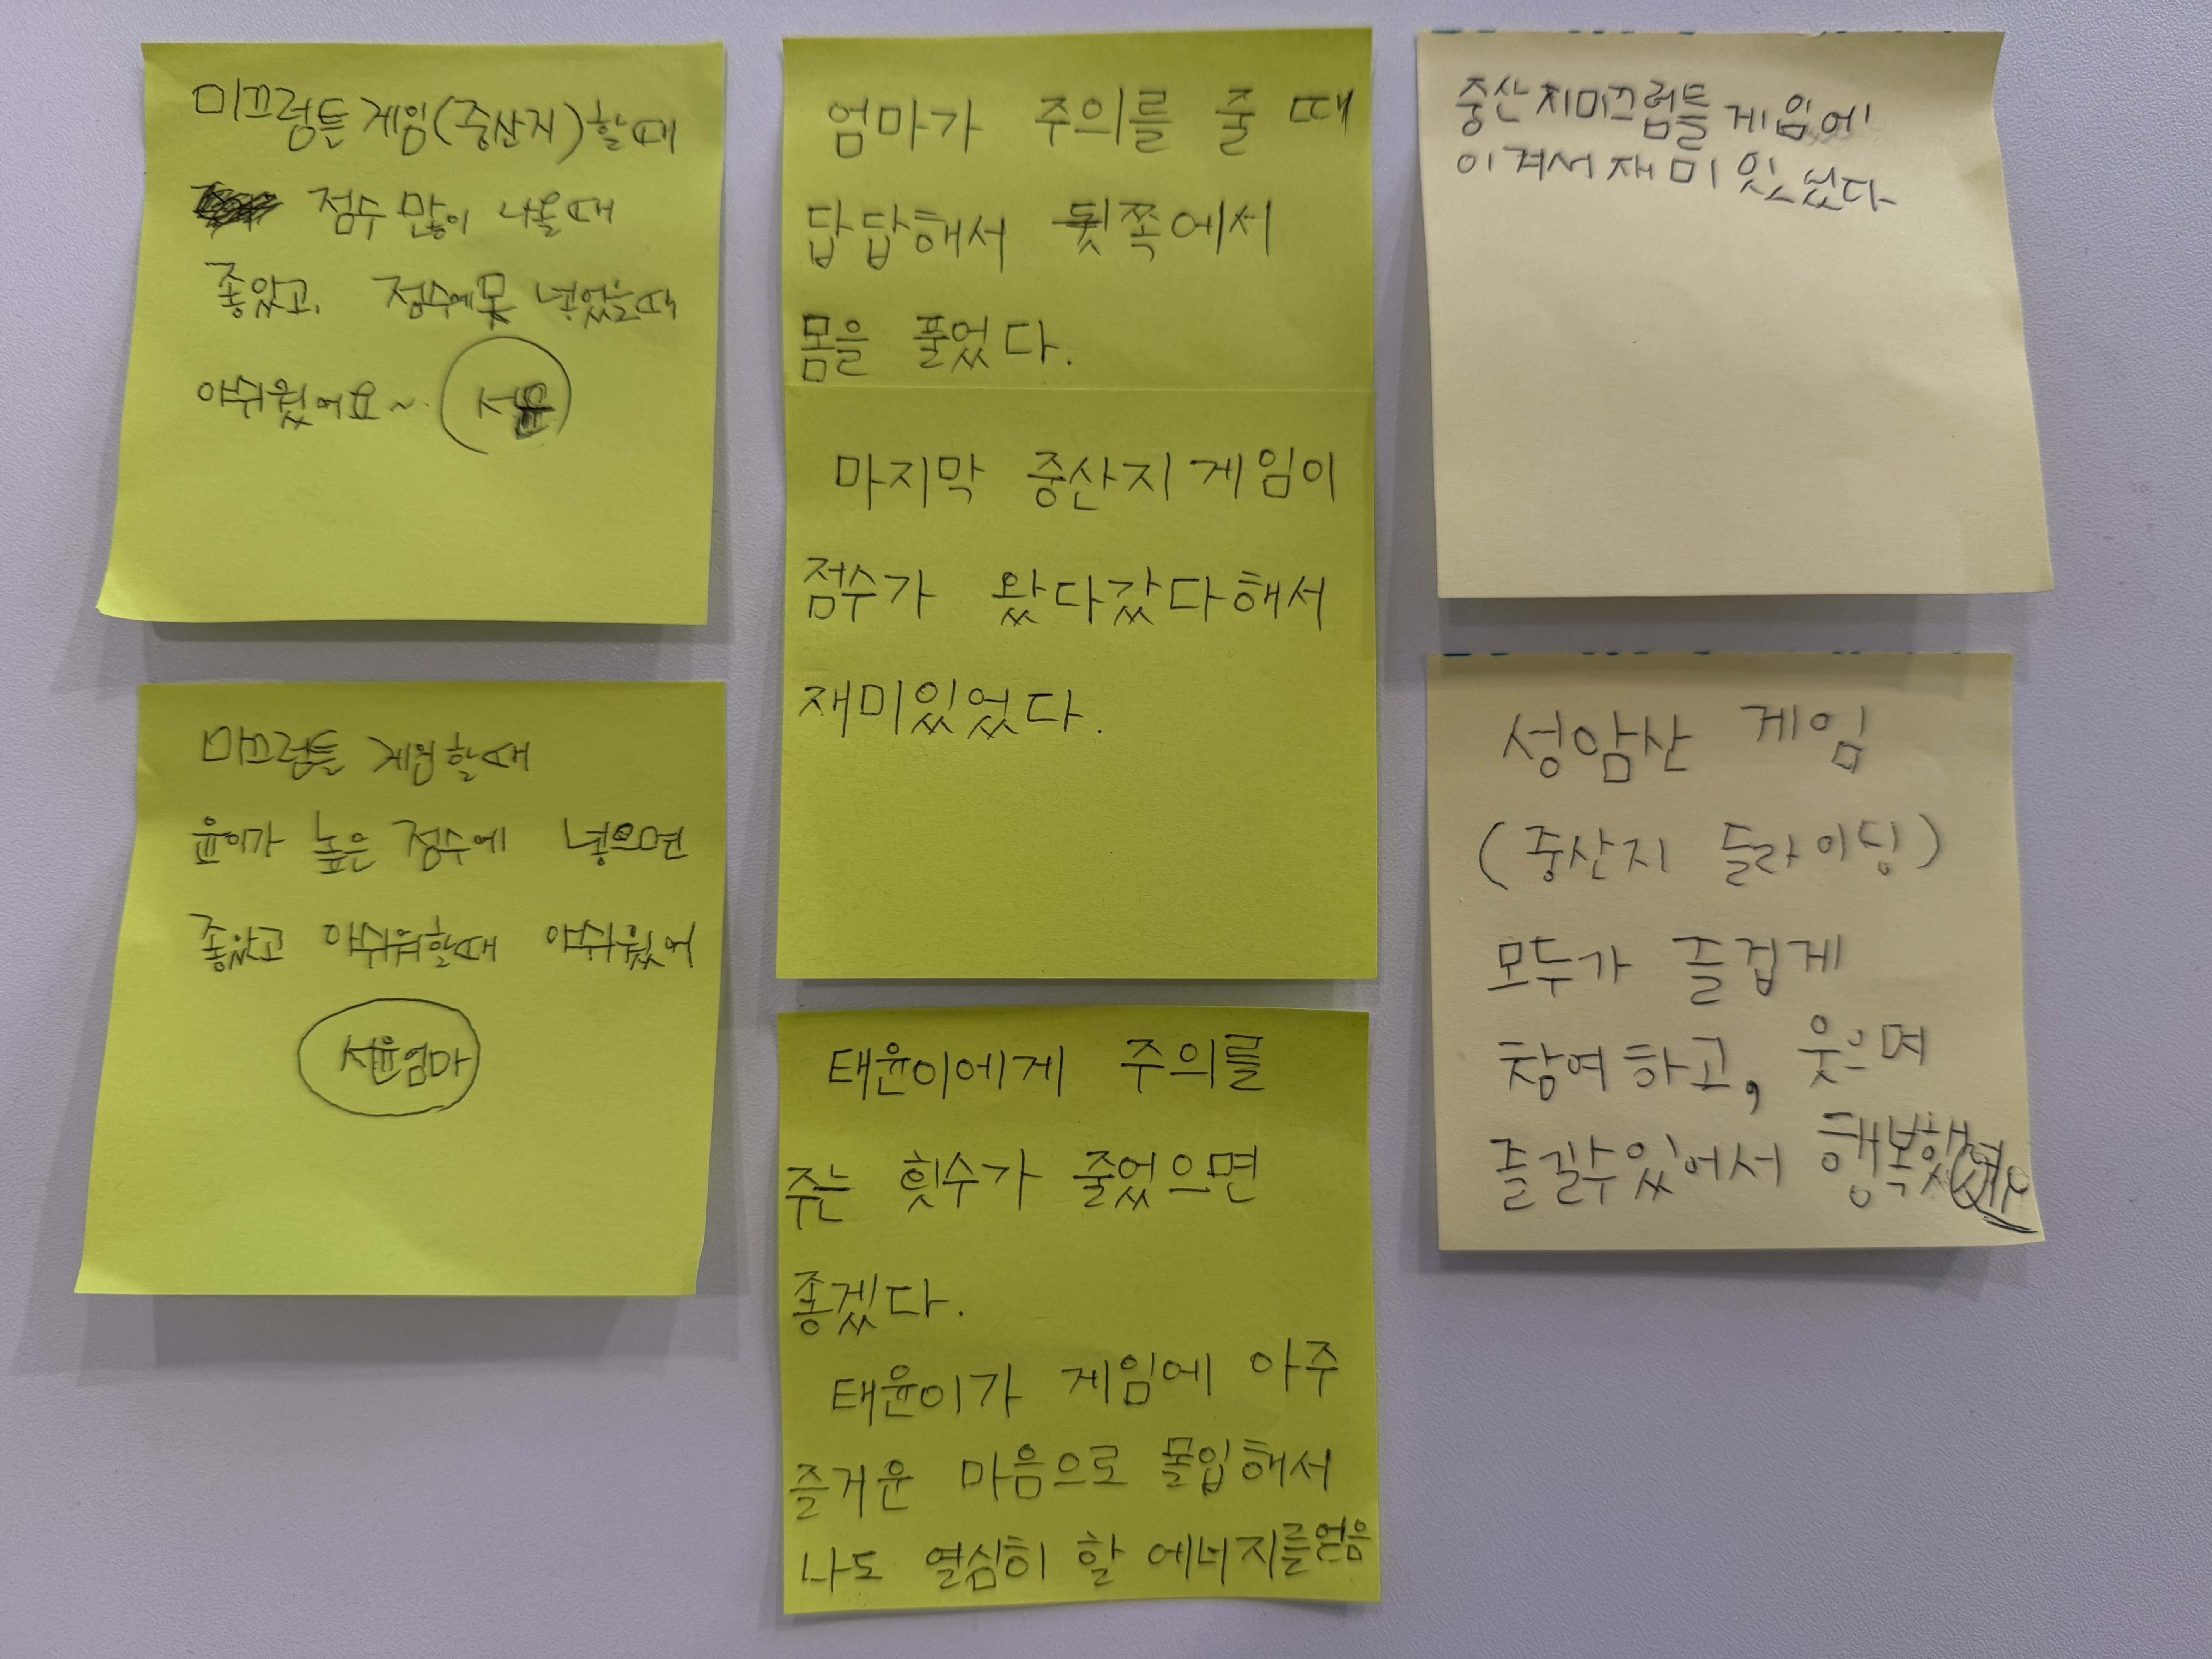 미끄럼틀 게임(중산지)할때
점수 많이 나올때
좋았고, 점수에 못 넣었을때
아쉬웠어요~ 서윤
미끄럼틀 게임할때
윤이가 높은 점수에 넣으면
좋았고 아쉬워할때 아쉬웠어
서윤엄마
엄마가 주의를 줄 때
답답해서 뒷쪽에서
몸을 풀었다.
마지막 중산지 게임이
점수가 왔다갔다해서
재미있었다.
태윤이에게 주의를
주는 횟수가 줄었으면
좋겠다.
태윤이가 게임에 아주
즐거운 마음으로 몰입해서
나도 열심히 할 에너지를얻음
중산지미끄럼틀게임에
이겨서재미있었다
성암산 게임
(중산지 들라이딩)
모두가 즐겁게
참여하고, 웃으며
즐길수있어서